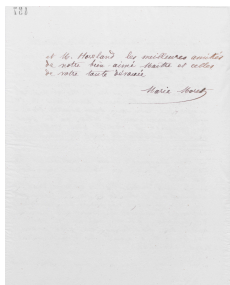 et M. Howland les meilleures amitiés
de notre bien-aimé Maître et celles
de votre toute dévouée
Marie Moret